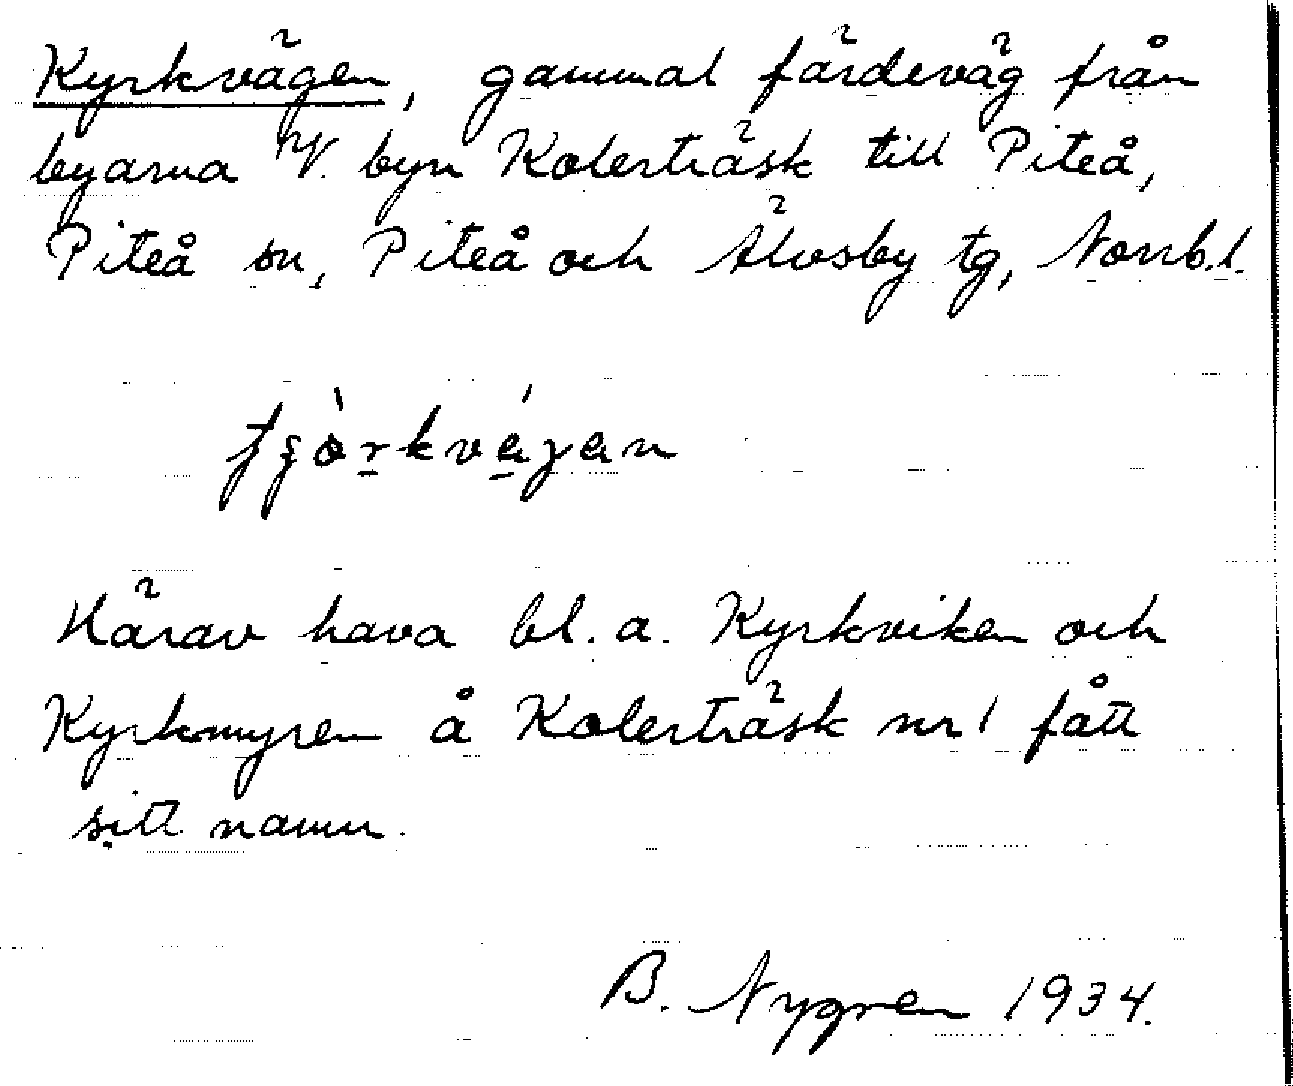 Kyrkvägen, gammal färdeväg från
byarna V. byn Kolerträsk till Piteå,
Piteå sn, Piteå och Älvsby tg, Norrb.l.
Härav hava bl. a. Kyrkviken och
Kyrkmyren å Kolerträsk nr 1 fått
sitt namn.
B. Nygren 1934.